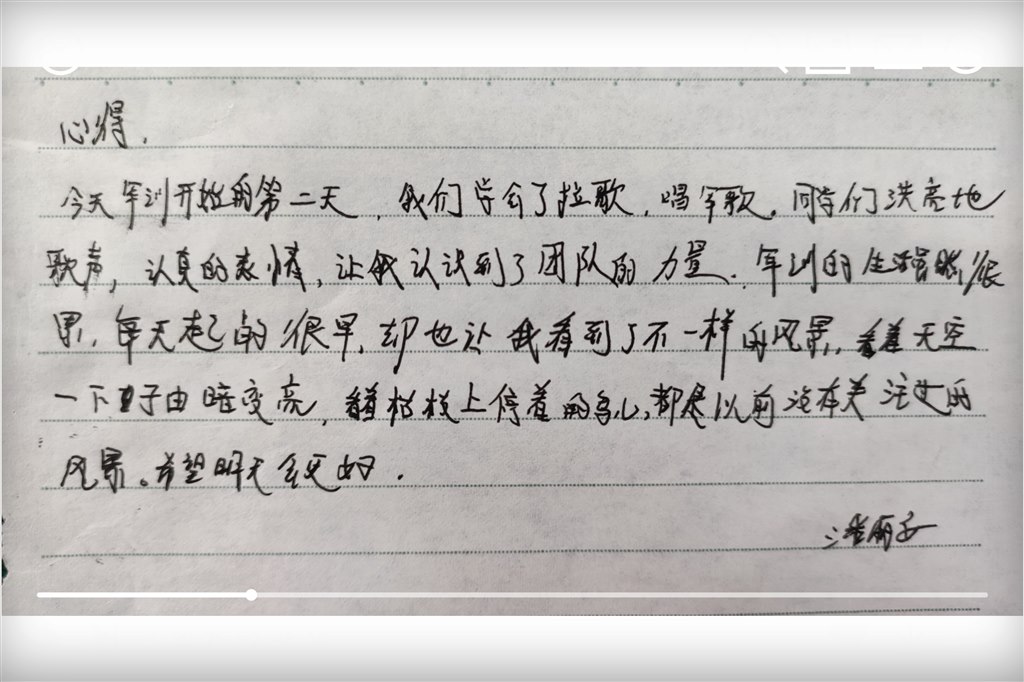 心得.
今天军训开始的第二天,我们学会了拉歌,唱军歌。同学们洪亮地
歌声,认真的表情,让我认识到了团队的力量.军训的生活虽然很
累,每天起的很早,却也让我看到了不一样的风景,看着天空
一下子由暗变亮,看着树枝上停着的鸟儿,都是以前没有关注过的
风景。希望明天会更好.